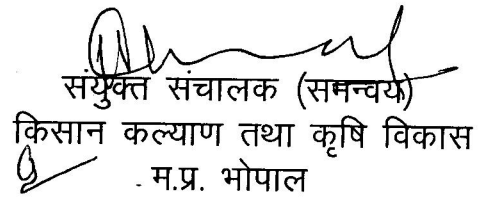 संयुक्त संचालक (समन्वय)
किसान कल्याण तथा कृषि विकास
म.प्र. भोपाल